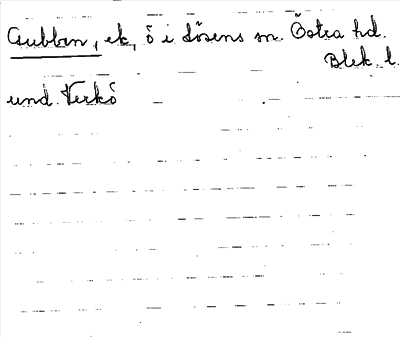 Gubben, ek, ö i Lösens sn. Östra hd.
Blek. l.
und. Verkö